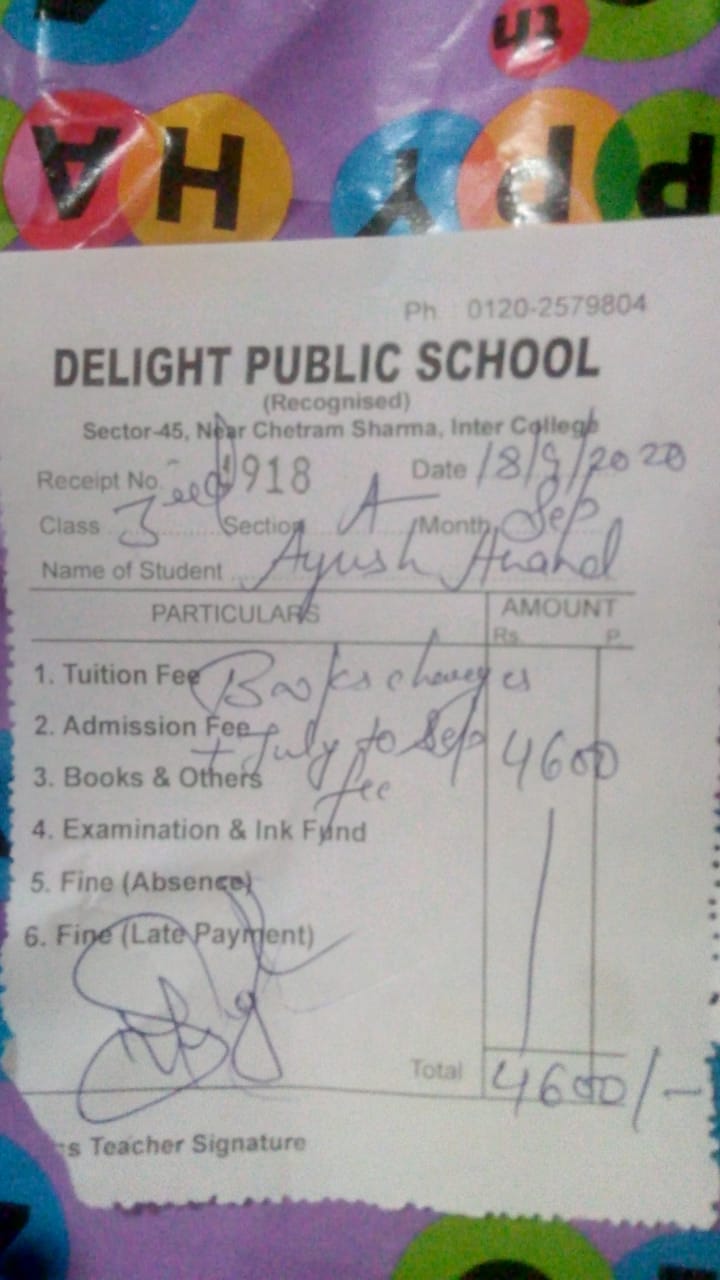 th
HAPPY
Ph 0120-2579804
DELIGHT PUBLIC SCHOOL
(Recognised)
Sector-45, Near Chetram Sharma, Inter College
Receipt No. 918 Date 18/9/2020
Class 3 Section A Month Sep
Name of Student Ayush Anand
PARTICULARS AMOUNT
Rs. P.
1. Tuition Fee Books charges
2. Admission Fee + July to Sep 4600
3. Books & Others fee
4. Examination & Ink Fund
5. Fine (Absence)
6. Fine (Late Payment)
Total 4600/-
ss Teacher Signature